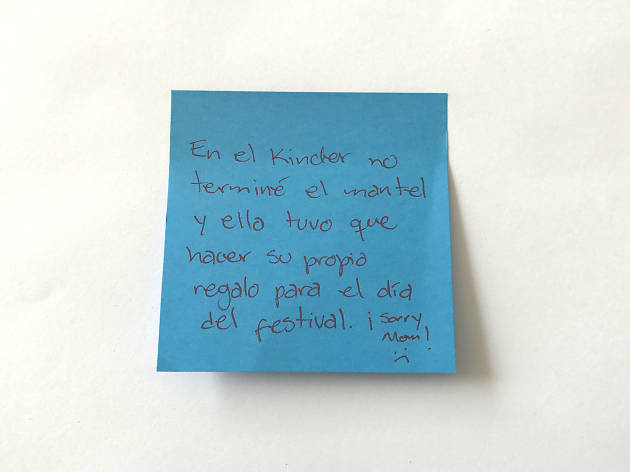 En el Kinder no
terminé el mantel
y ella tuvo que
hacer su propio
regalo para el día
del festival. ¡Sorry
Mom!
:(